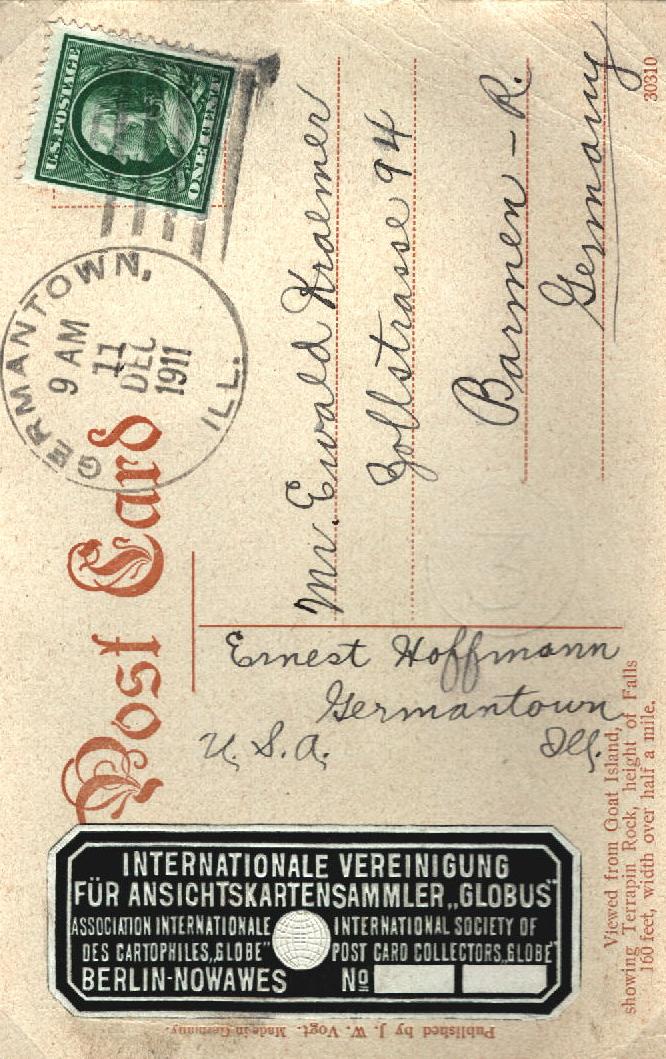 U.S. POSTAGE
ONE CENT
GERMANTOWN,
9 AM
11
DEC
1911
ILL.
Post Card
Mr. Ewald Kraemer
Zollstrasse 94
Barmen - R.
Germany
30310
Ernest Hoffmann
Germantown
U. S. A. Ill.
Viewed from Goat Island,
showing Terrapin Rock, height of Falls
160 feet, width over half a mile.
INTERNATIONALE VEREINIGUNG
FÜR ANSICHTSKARTENSAMMLER „GLOBUS"
ASSOCIATION INTERNATIONALE
DES CARTOPHILES „GLOBE"
INTERNATIONAL SOCIETY OF
POST CARD COLLECTORS „GLOBE"
BERLIN-NOWAWES No
Published by J. W. Vogt. Made in Germany.